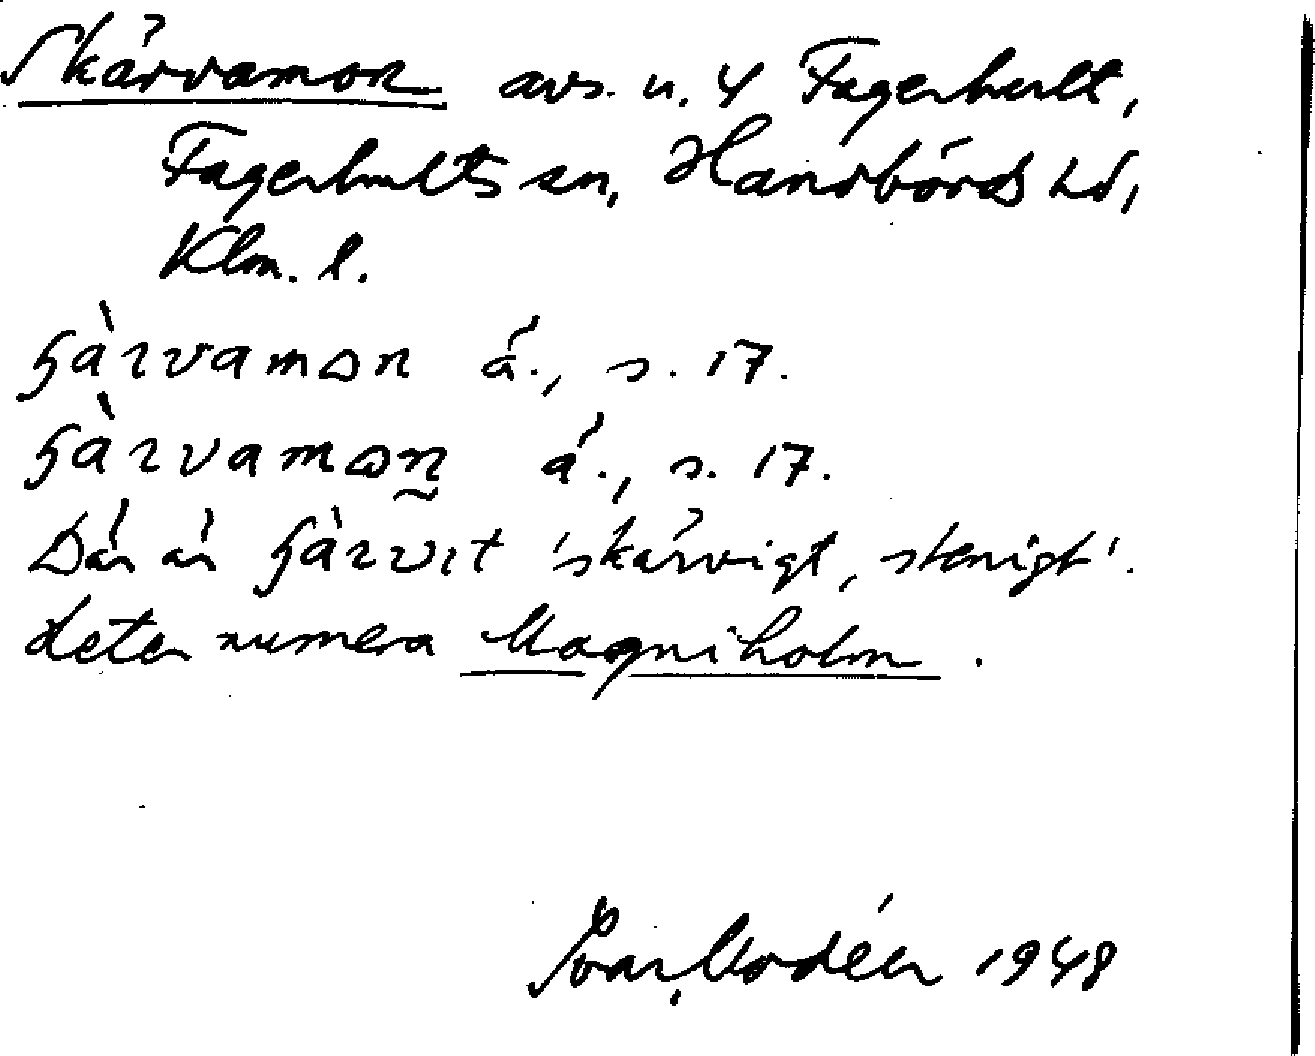 Skärvamon avs. u. 4 Fagerhult,
Fagerhults sn, Handbörds hd,
Klm. l.
ʃàrvamon ä., s. 17.
ʃàrvamon̰ ä., s. 17.
Där är ʃàrvıt 'skärvigt, stenigt'.
heter numera Magniholm.
Ivar Modéer 1948